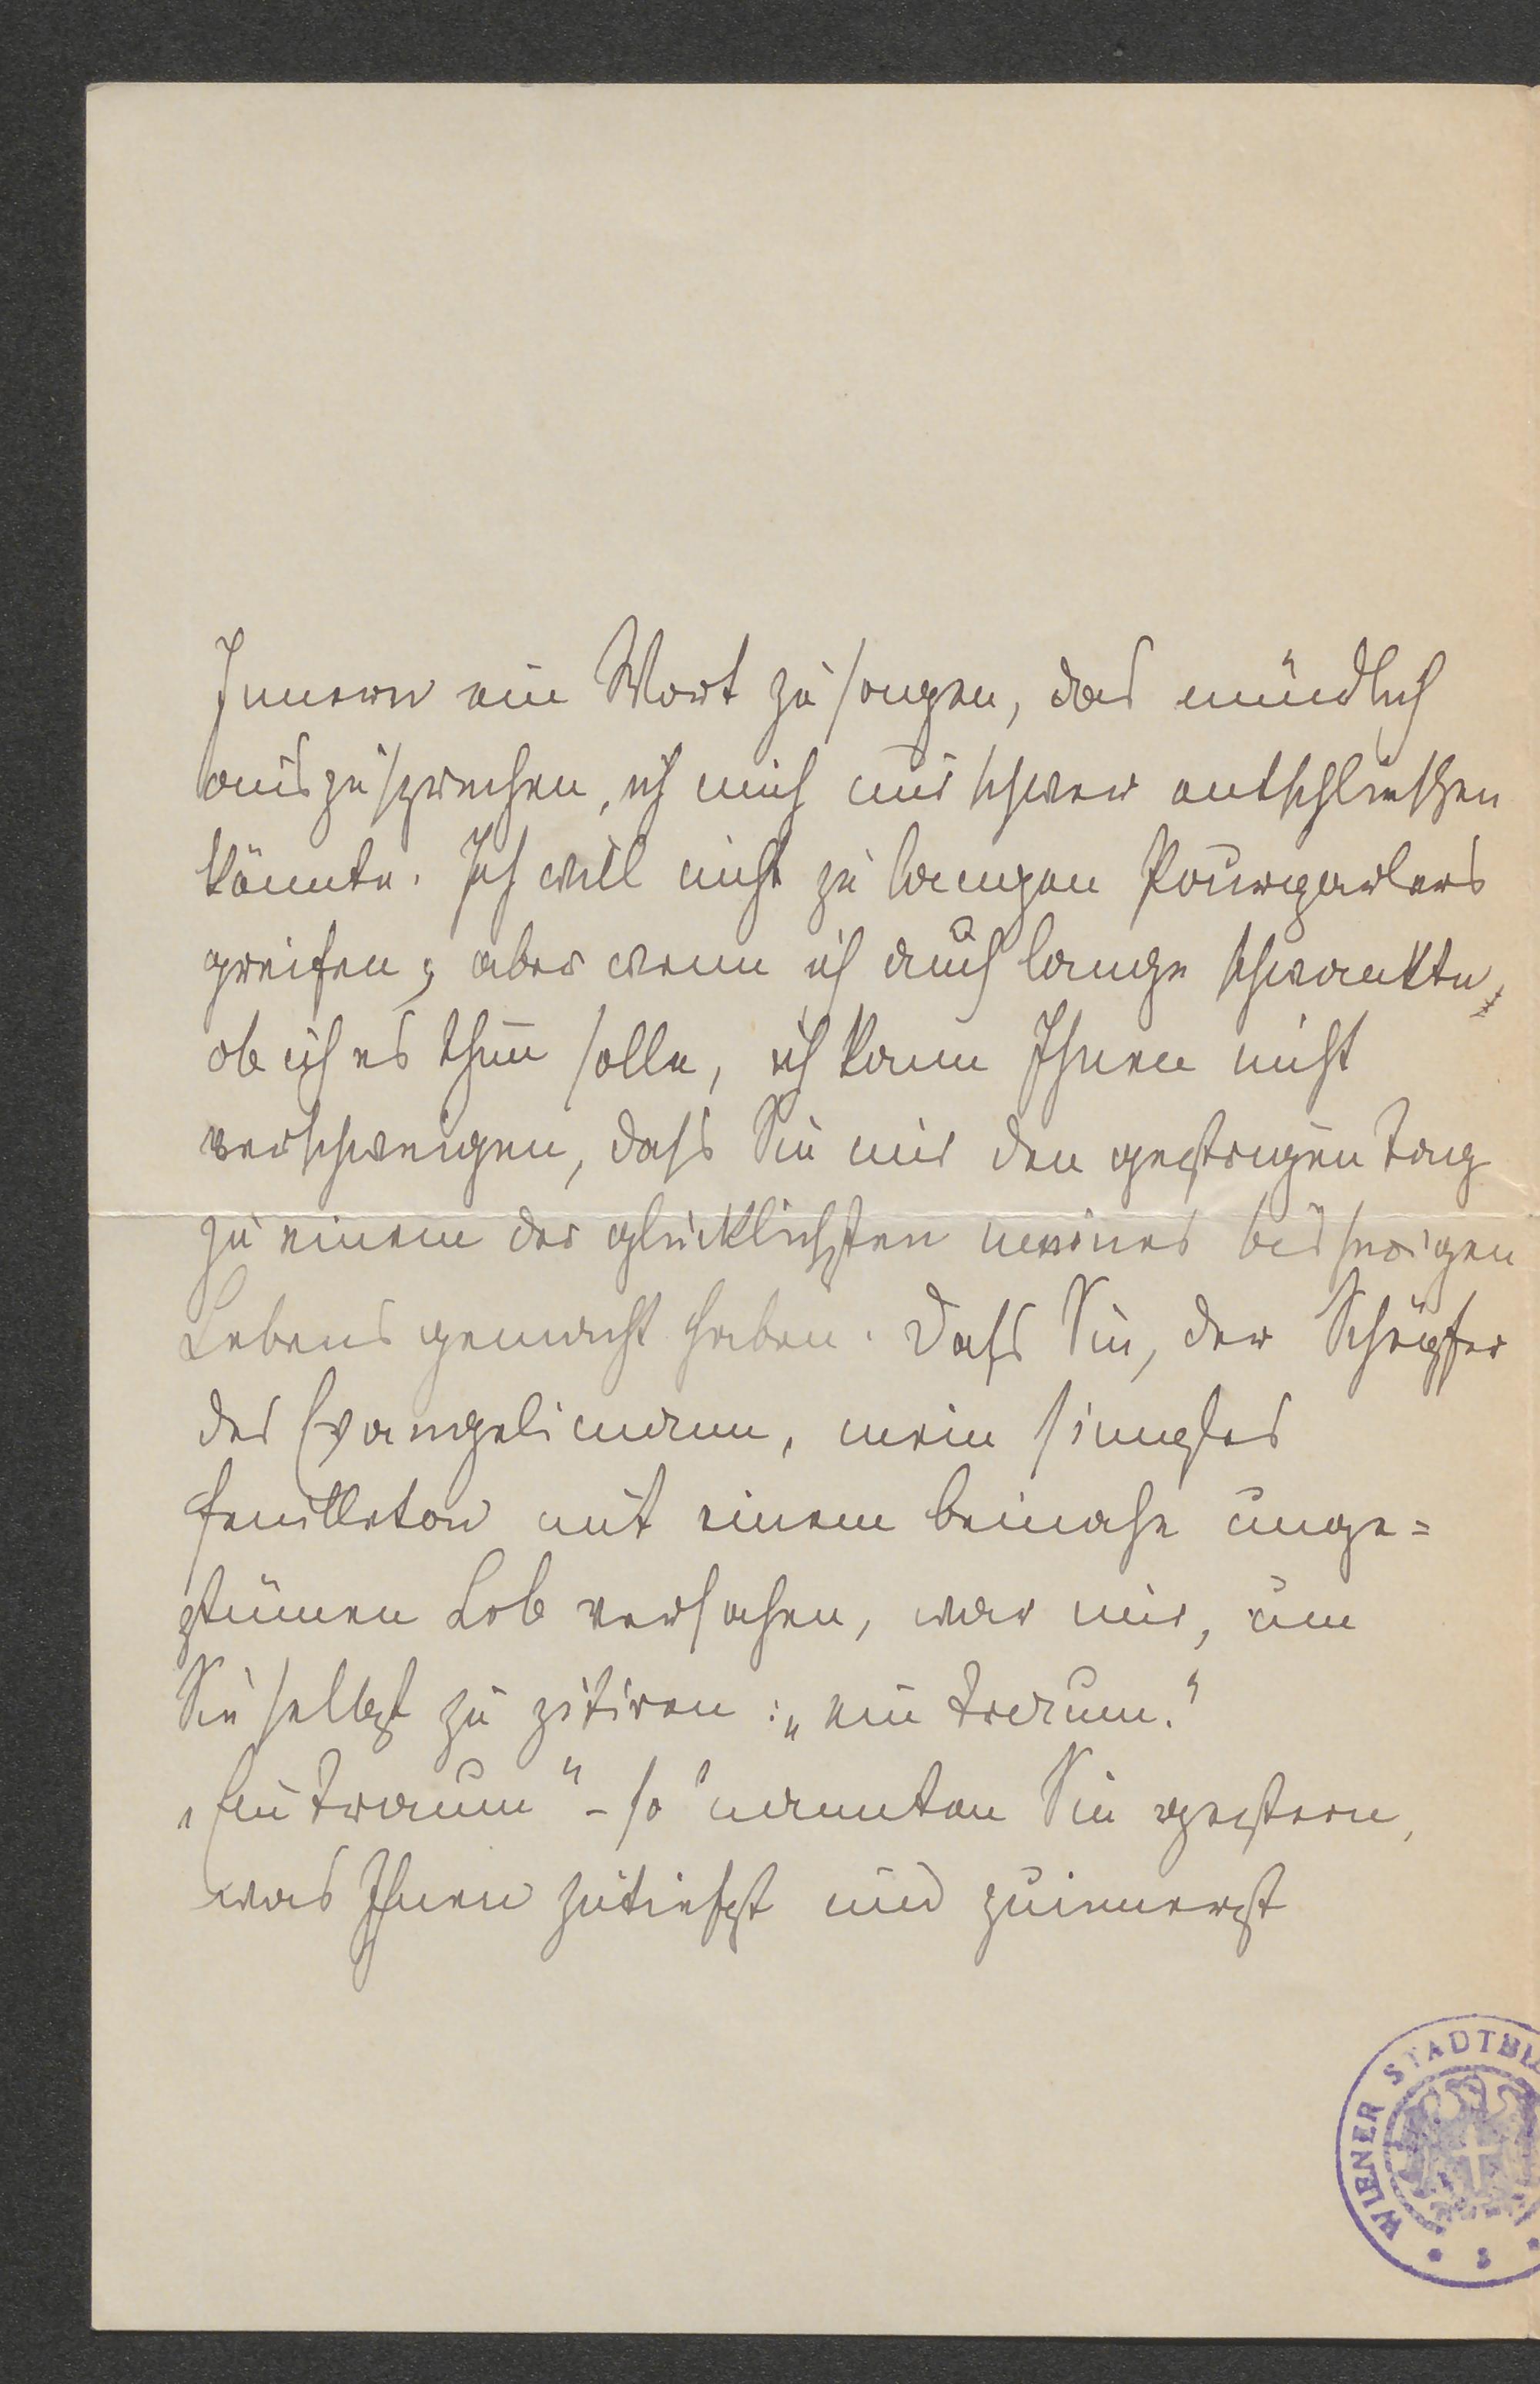 Innern ein Wort zu sagen, das mündlich
auszusprechen, ich mich nur schwer entschließen
könnte. Ich will nicht zu langen Pourparlers
greifen; aber wenn ich auch lange schwankte,
ob ich es thun solle, ich kann Ihnen nicht
verschweigen, dass Sie mir den gestrigen Tag
zu einem der glücklichsten meines bisherigen
Lebens gemacht haben. Dass Sie, der Schöpfer
des Evangelimann, mein
Feuilleton mit einem beinahe unge=
stümen Lob versahen, war mir, um
Sie selbst zu zitiren: „ein Traum."
„Ein Traum" - so nannten Sie gestern,
was Ihnen zutiefst und zuinnerst
WIENER STADTBI